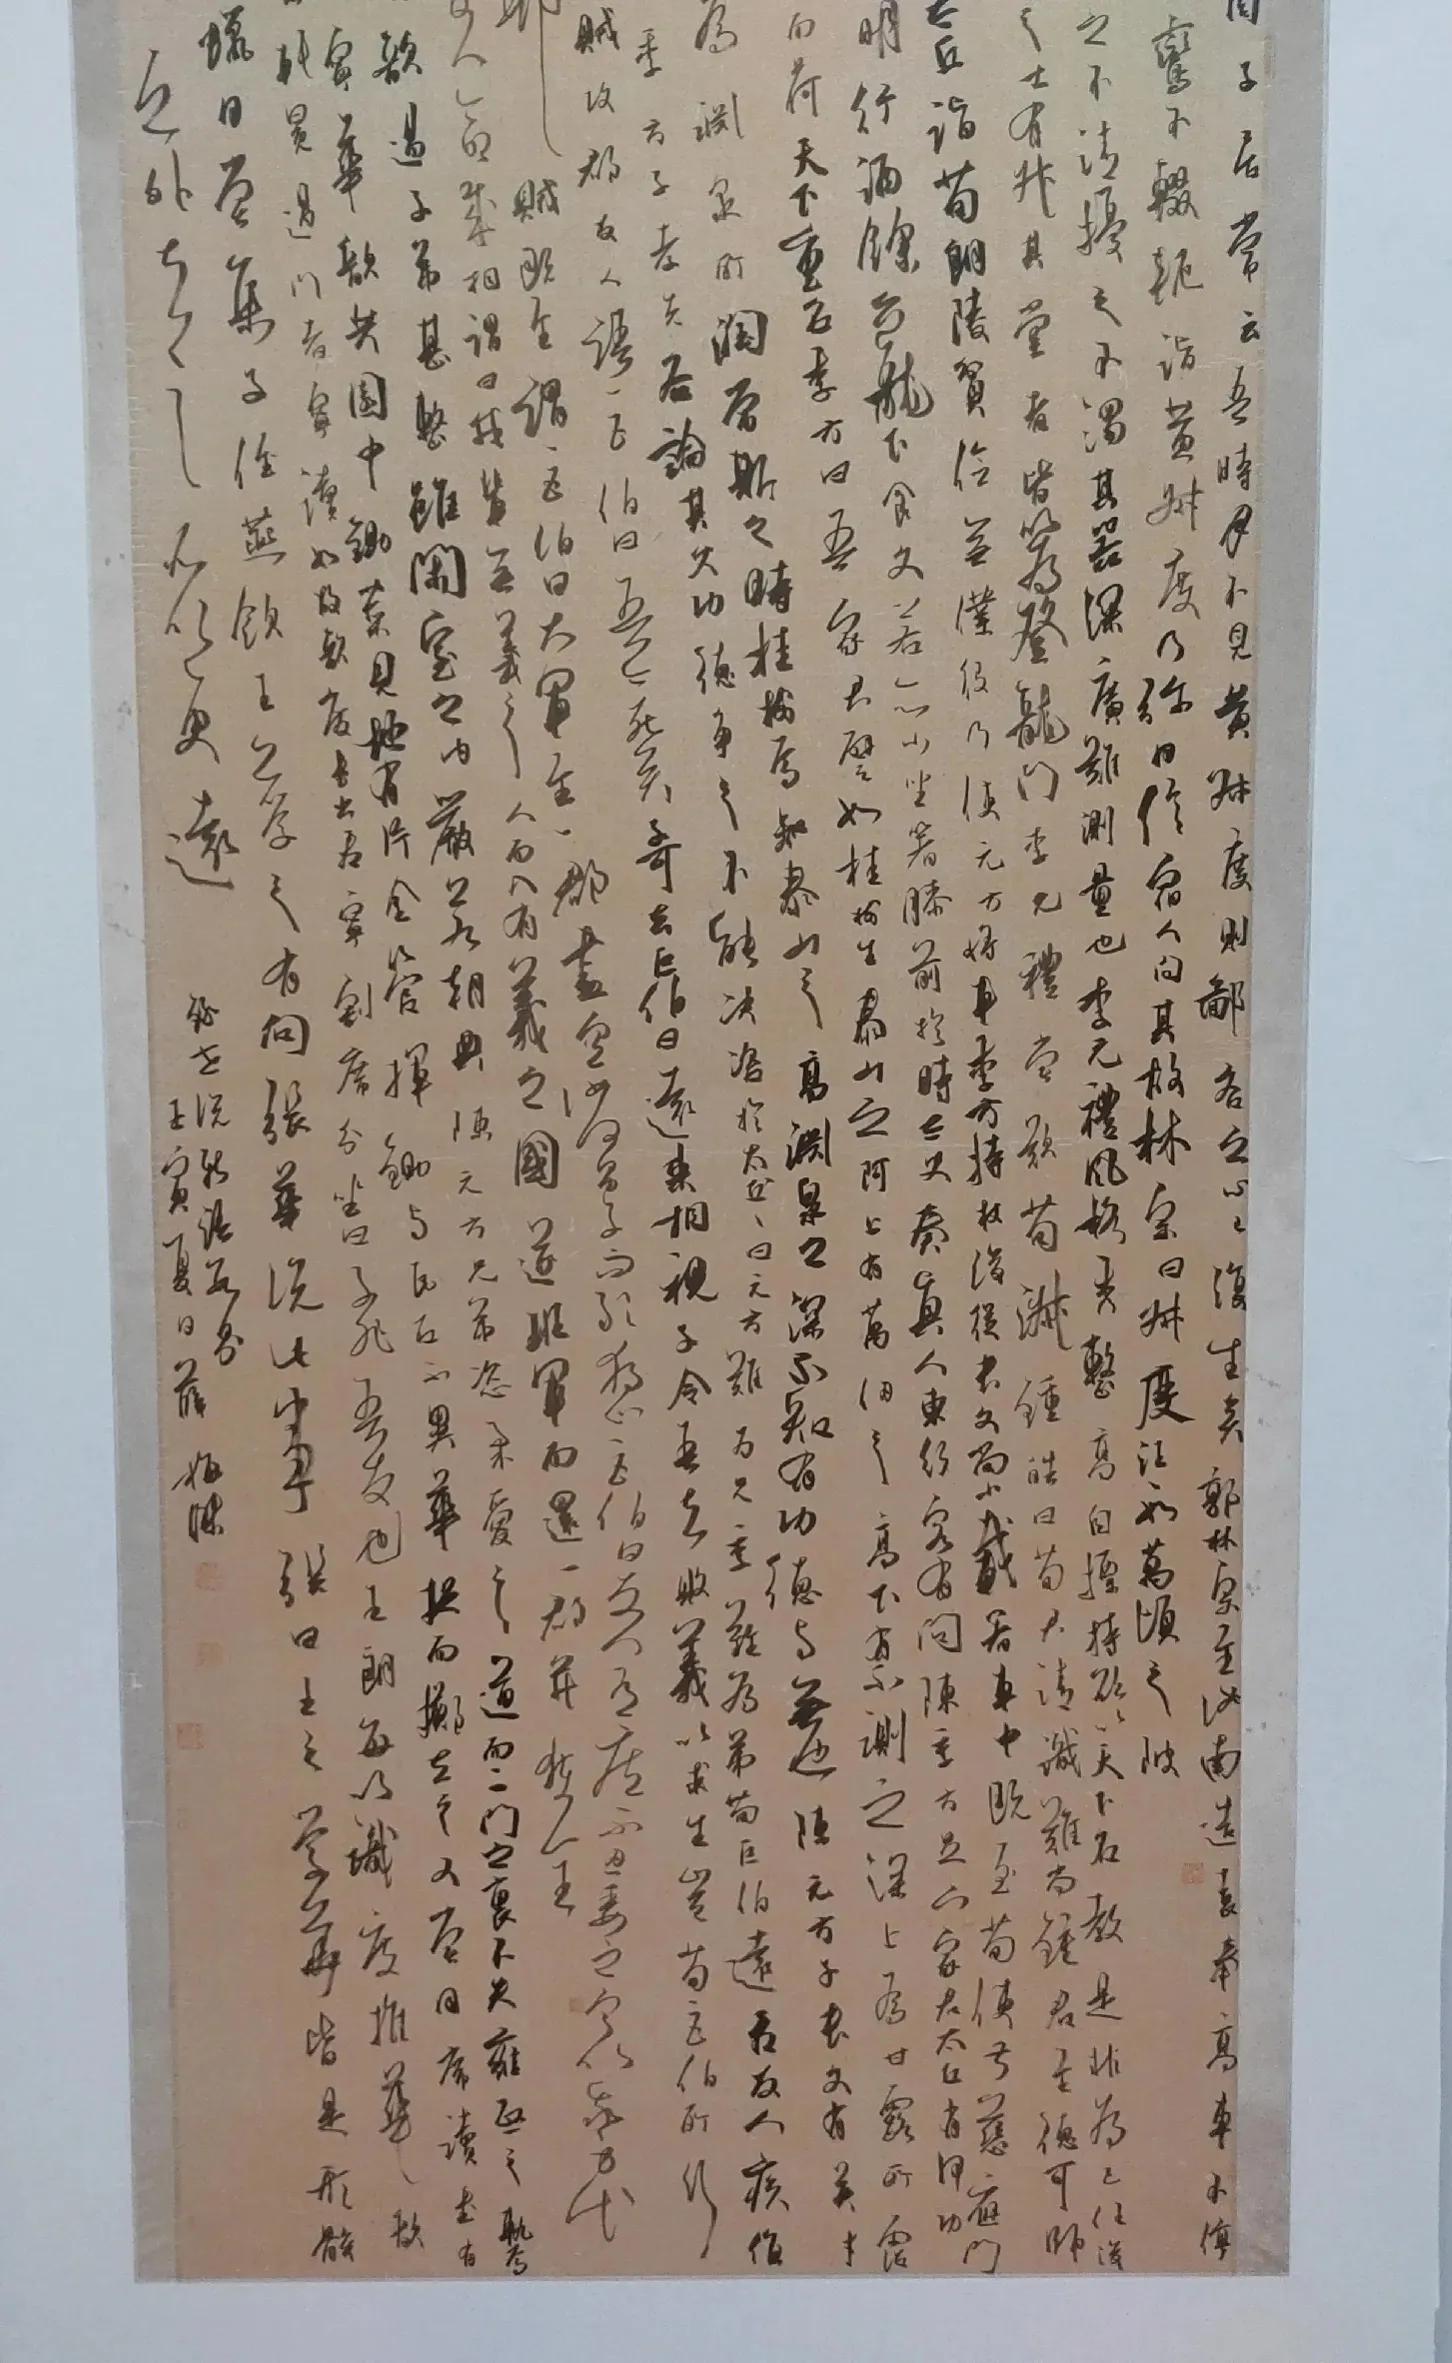 周子居常云吾時月不見黃叔度則鄙吝之心已復生矣郭林宗至汝南造袁奉高車不停
鸞不輟軛詣黃叔度乃彌日信宿人問其故林宗曰叔度汪汪如萬頃之陂
之不清擾之不濁其器深廣難測量也李元禮風格秀整高自標持欲以天下名教是非為己任後
之士有升其堂者皆以為登龍門李元禮嘗歎荀淑鍾皓曰荀君清識難尚鍾君至德可師
太丘詣荀朗陵貧儉無僕役乃使元方將車季方持杖後從長文尚小載著車中既至荀使叔慈應門
明行酒餘六龍下食文若亦小坐著膝前於時太史奏真人東行客有問陳季方足下家君太丘有何功
而荷天下重名季方曰吾家君譬如桂樹生泰山之阿上有萬仞之高下有不測之深上為甘露所霑
為淵泉所潤當斯之時桂樹焉知泰山之高淵泉之深不知有功德與無也陳元方子長文有英才
季方子孝先各論其父功德爭之不能決咨於太丘太丘曰元方難為兄季方難為弟荀巨伯遠看友人疾值
賊攻郡友人語巨伯曰吾今死矣子可去巨伯曰遠來相視子令吾去敗義以求生豈荀巨伯所行
邪賊既至謂巨伯曰大軍至一郡盡空汝何男子而敢獨止巨伯曰友人有疾不忍委之寧以我身代
友人命賊相謂曰我輩無義之人而入有義之國遂班軍而還一郡並獲全
歆遇子弟甚整雖閒室之內嚴若朝典陳元方兄弟恣柔愛之道而二門之裏不失雍熙之軌焉
寧華歆共園中鋤菜見地有片金管揮鋤與瓦石不異華捉而擲去之又嘗同席讀書有
軒冕過門者寧讀如故歆廢書出看寧割席分坐曰子非吾友也王朗每以識度推華歆
蜡日嘗集子侄燕飲王亦學之有問張華說此事張曰王之學華皆是形骸
之外去之所以更遠
錄世說新語數則
壬寅夏日薛